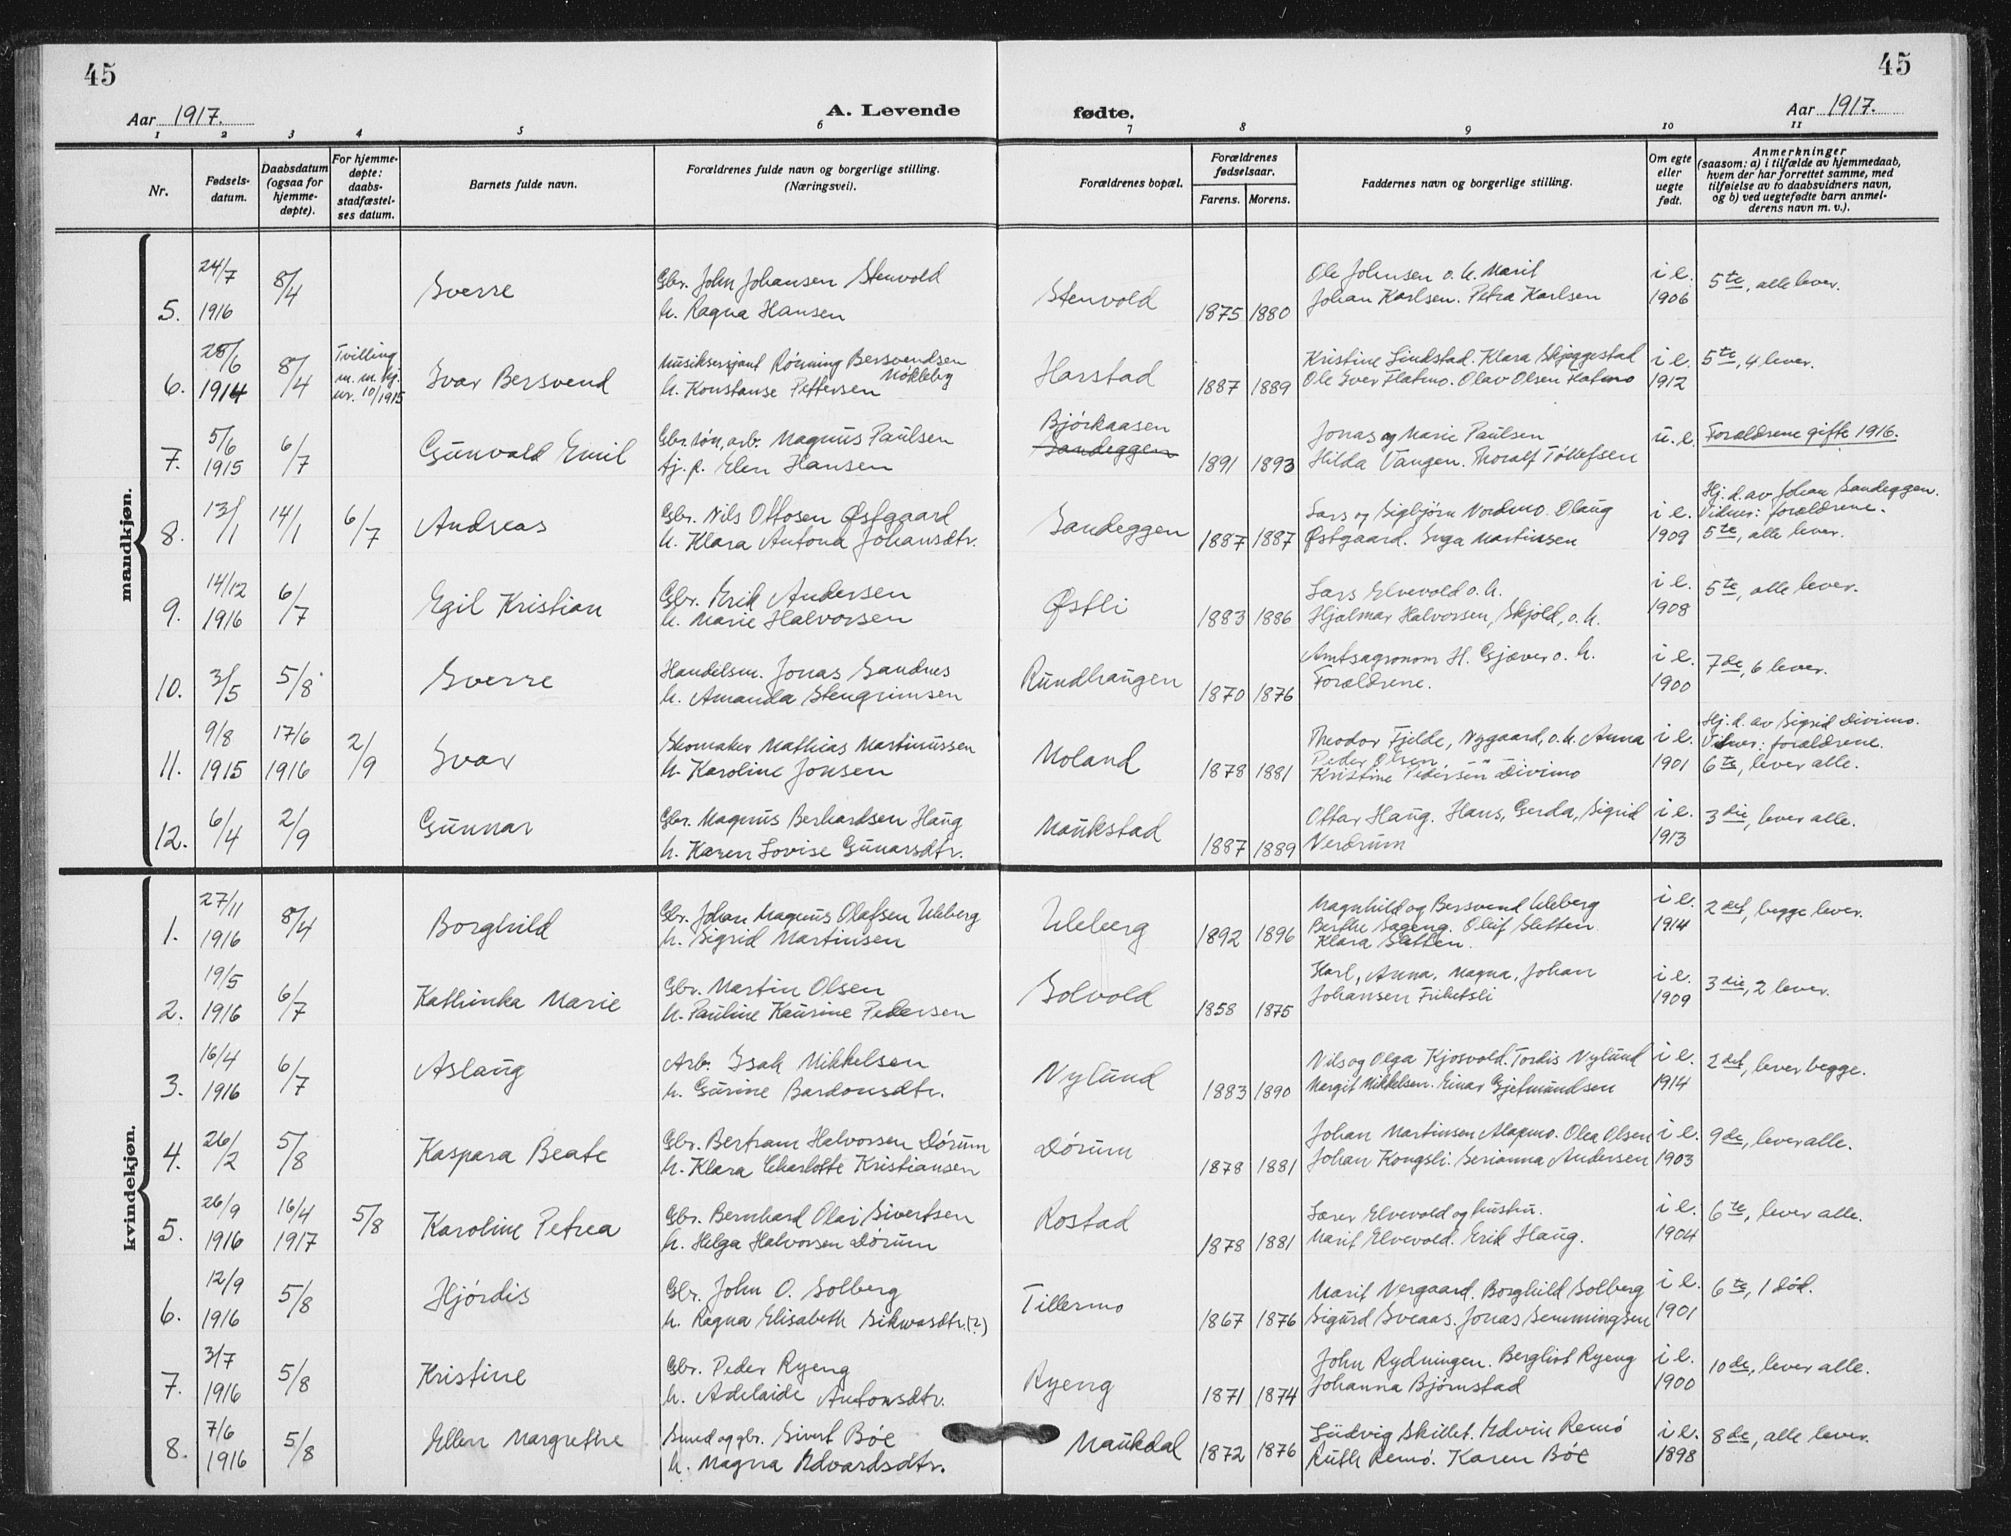 45
45
Aar 1917.
A. Levende fødte.
Aar 1917.
1 2 3 4 5 6 7 8 9 10 11
Nr.
Fødsels-datum.
Daabsdatum (ogsaa for hjemme-døpte).
For hjemme-døpte: daabs-stadfæstel-ses datum.
Barnets fulde navn.
Forældrenes fulde navn og borgerlige stilling. (Næringsvei).
Forældrenes bopæl.
Forældrenes fødselsaar.
Farens. Morens.
Faddernes navn og borgerlige stilling.
Om egte eller uegte født.
Anmerkninger (saasom: a) i tilfælde av hjemmedaab, hvem der har forrettet samme, med tilføielse av to daabsvidners navn, og b) ved uegtefødte barn anmel-derens navn m. v.).
mandkjøn.
5. 24/7 1916 8/4 Sverre
Gbr. John Johansen Stenvold
h. Ragna Hansen
Stenvold 1875 1880
Ole Johnsen o. h. Marit
Johan Karlsen. Petra Karlsen
i e. 1906
5te, alle lever.
6. 28/6 1914 8/4
Tvilling m. m. kj. nr. 10/1915
Ivar Bersvend
Musiksersjant Rönning Bersvendsen Mökleby
h. Konstanse Pettersen
Harstad 1887 1889
Kristine Lindstad. Klara Skjeggestad
Ole Iver Flatmo. Olav Olsen Flatmo
i e. 1912
5te, 4 lever.
7. 5/6 1915 6/7 Gunvald Emil
Gbr. sön, arb. Magnus Paulsen
tj. p. Elen Hansen
Björkaasen
Sandeggen
1891 1893
Jonas og Marie Paulsen
Hilda Vangen. Thoralf Tollefsen
u. e.
Forældrene gifte 1916.
8. 13/1 14/1 6/7 Andreas
Gbr. Nils Ottosen Østgaard
h. Klara Antona Johansdtr.
Sandeggen 1887 1887
Lars og Sigbjörn Nordmo. Olaug
Østgaard. Inga Martinsen
i e. 1909
Hj. d. av Johan Sandeggen.
Vidner: forældrene.
5te, alle lever.
9. 14/12 1916 6/7 Egil Kristian
Gbr. Erik Andersen
h. Marie Halvorsen
Østli 1883 1886
Lars Elvevold o. h.
Hjalmar Halvorsen, Skjold, o. h.
i e. 1908
5te, alle lever.
10. 3/5 5/8 Sverre
Handelsm. Jonas Sandnes
h. Amanda Stengrimsen
Rundhaugen 1870 1876
Amtsagronom H. Gjæver o. h.
Forældrene.
i e. 1900
7de, 6 lever.
11. 9/8 1915 17/6 1916 2/9 Ivar
Skomaker Mathias Martinussen
h. Karoline Jonsen
Moland 1878 1881
Theodor Fjelde, Nygaard, o. h. Anna
Peder Olsen
Kristine Pedersen Divimo
i e. 1901
Hj. d. av Sigrid Divimo.
Vidner: forældrene.
6te, lever alle.
12. 6/4 2/9 Gunnar
Gbr. Magnus Berhardsen Haug
h. Karen Lovise Gunarsdtr.
Maukstad 1887 1889
Ottar Haug. Hans, Gerda, Sigrid
Verdrum
i e. 1913
3die, lever alle.
kvindekjøn.
1. 27/11 1916 8/4 Borghild
Gbr. Johan Magnus Olafsen Uleberg
h. Sigrid Martinsen
Uleberg 1892 1896
Magnhild og Bersvend Uleberg
Berthe Sageng. Oluf Sletten
Klara Sletten.
i e. 1914
2det, begge lever.
2. 19/5 1916 6/7 Kathinka Marie
Gbr. Martin Olsen
h. Pauline Kaurine Pedersen
Solvold 1858 1875
Karl, Anna, Magna, Johan
Johansen Frihetsli
i e. 1909
3die, 2 lever.
3. 16/4 1916 6/7 Aslaug
Arb. Isak Mikkelsen
h. Gurine Bardonsdtr.
Nylund 1883 1890
Nils og Olga Kjosvold. Tordis Nylund
Margit Mikkelsen. Einar Gjetmundsen
i e. 1914
2det, lever begge.
4. 26/2 5/8 Kaspara Beate
Gbr. Bertram Halvorsen Dörum
h. Klara Charlotte Kristiansen
Dörum 1878 1881
Johan Martinsen Alapmo. Olea Olsen
Johan Kongsli. Serianna Andersen
i e. 1903
9de, lever alle.
5. 26/9 1916 16/4 1917 5/8 Karoline Petrea
Gbr. Bernhard Olai Sivertsen
h. Helga Halvorsen Dörum
Rostad 1878 1881
Lærer Elvevold og hustru.
Marit Elvevold. Erik Haug.
i e. 1904
6te, lever alle.
6. 12/9 1916 5/8 Hjördis
Gbr. John O. Solberg
h. Ragna Elisabeth Sikvasdtr. (?)
Tillermo 1867 1876
Marit Vergaard. Borghild Solberg
Sigurd Sveaas. Jonas Semmingsen
i e. 1901
6te, 1 död.
7. 3/7 1916 5/8 Kristine
Gbr. Peder Ryeng
h. Adelaide Antonsdtr.
Ryeng 1871 1874
John Rydningen. Bergliot Ryeng
Johanna Björnstad
i e. 1900
10de, lever alle.
8. 7/6 1916 5/8 Ellen Margrethe
Smed og gbr. Sivert Böe
h. Magna Edvardsdtr.
Maukdal 1872 1876
Ludvig Skillet. Edvin Remö
Ruth Remö. Karen Böe
i e. 1898
8de, alle lever.